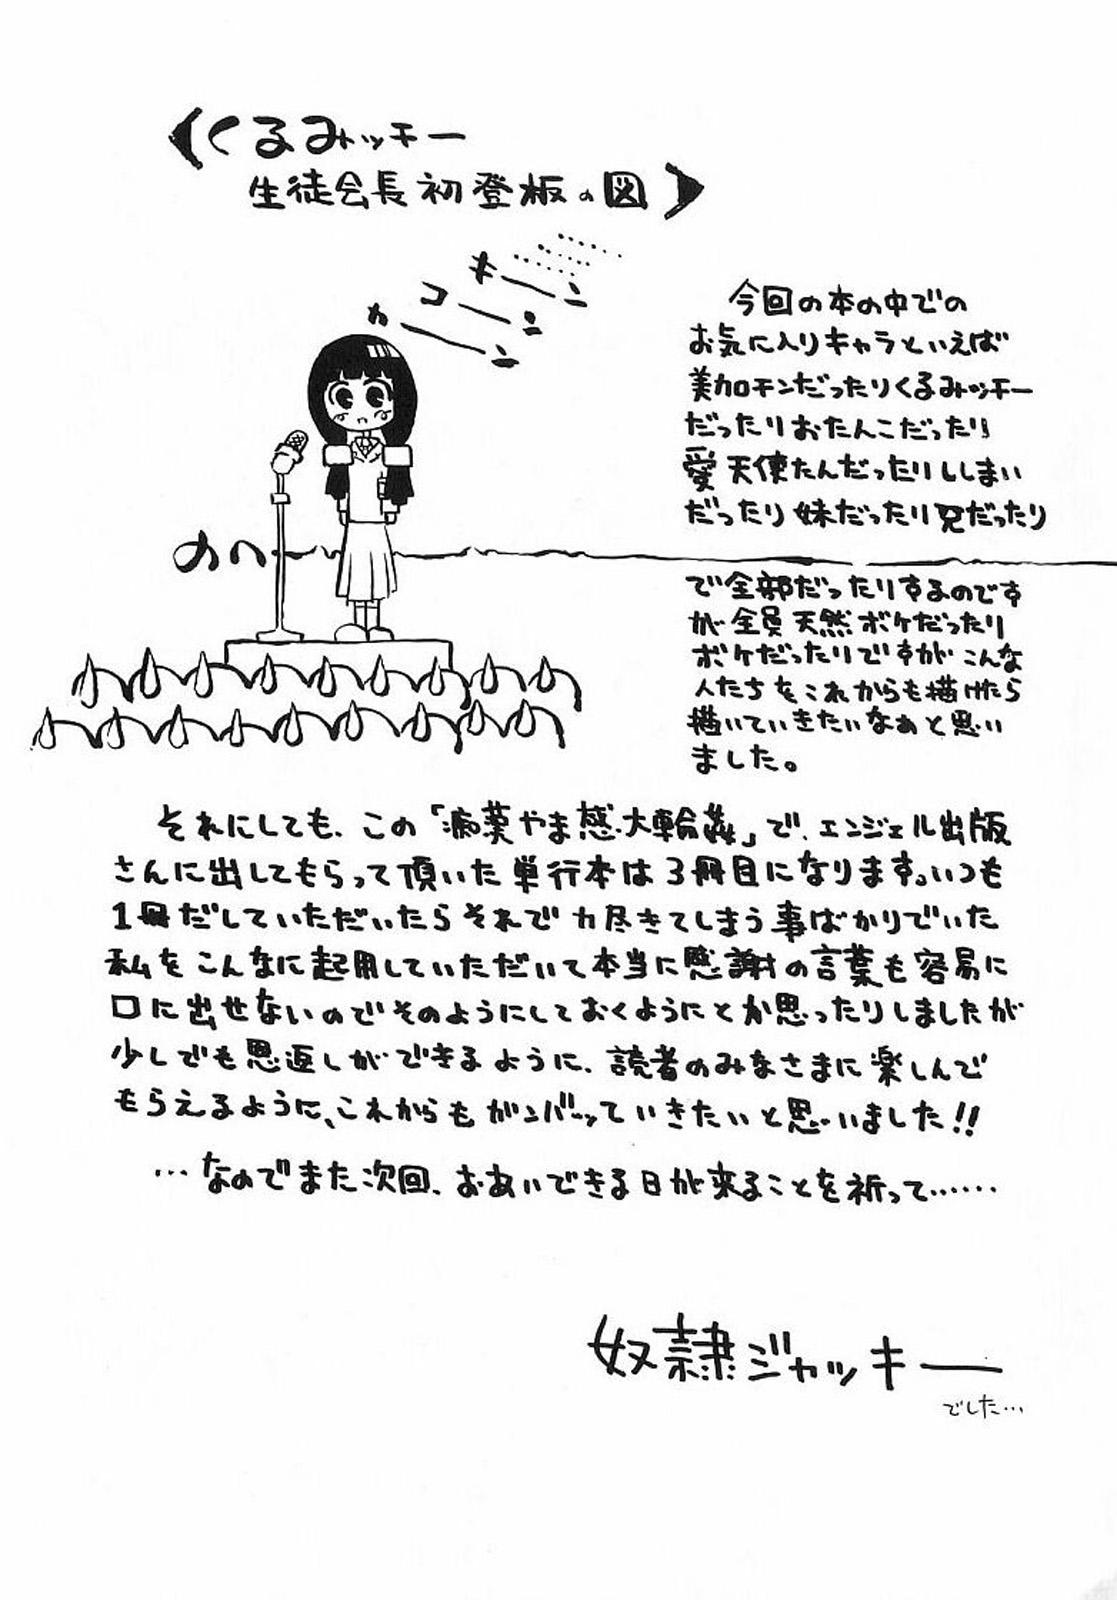 くるみッチー
生徒会長初登板の図
キーン
コーン
カーン
今回の本の中での
お気に入りキャラといえば
美加モンだったりくるみッチー
だったりおたんこだったり
愛天使たんだったりししまい
だったり妹だったり兄だったり
で全部だったりするのです
が全員天然ボケだったり
ボケだったりですがこんな
人たちをこれからも描けたら
描いていきたいなぁと思い
ました。
それにしても、この「病薬やま惑大輪姦」で、エンジェル出版
さんに出してもらって頂いた単行本は3冊目になります。いつも
1冊だしていただいたらそれで力尽きてしまう事ばかりでいた
私をこんなに起用していただいて本当に感謝の言葉も容易に
口に出せないのでそのようにしておくようにとか思ったりしましたが
少しでも恩返しができるように、読者のみなさまに楽しんで
もらえるように、これからもガンバッていきたいと思いました!!
…なのでまた次回、おあいできる日が来ることを祈って……
奴隷ジャッキー
でした…